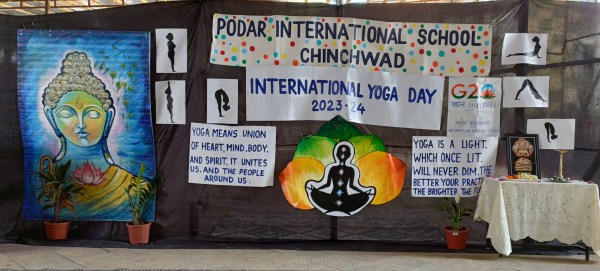 PODAR INTERNATIONAL SCHOOL
CHINCHWAD
INTERNATIONAL YOGA DAY
2023-24
G20
YOGA MEANS UNION
OF HEART, MIND, BODY,
AND SPIRIT, IT UNITES
US, AND THE PEOPLE
AROUND US.
YOGA IS A LIGHT,
WHICH ONCE LIT,
WILL NEVER DIM, THE
BETTER YOUR
THE BRIGHTER, THE